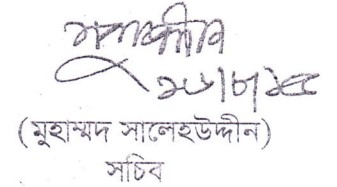 ১৬/৮/১৫
(মুহাম্মদ সালেহউদ্দীন)
সচিব